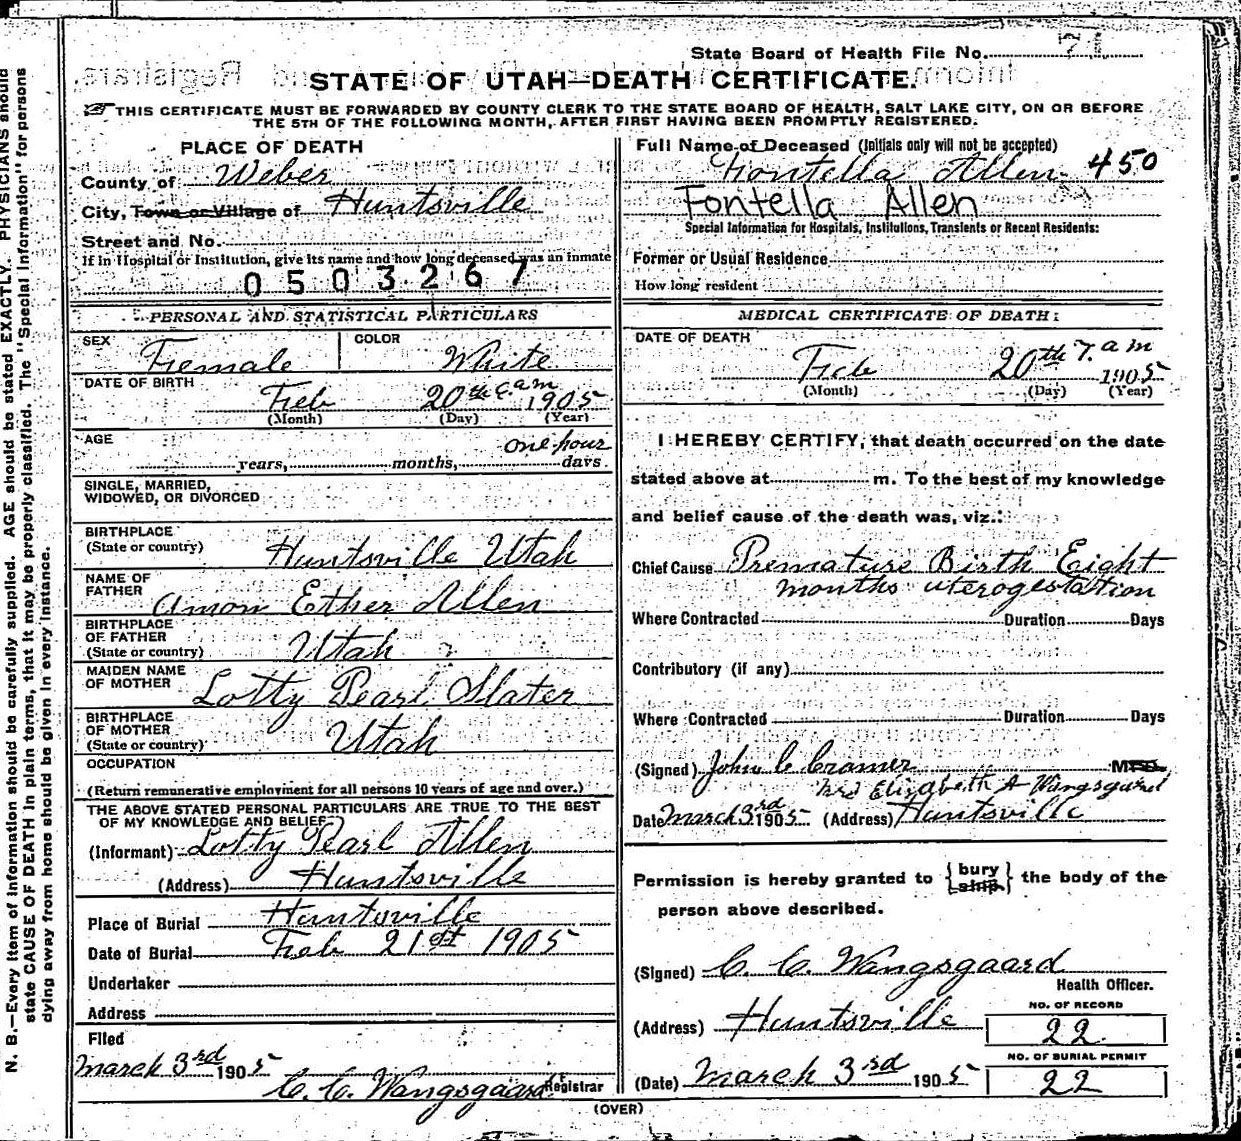 State Board of Health File No. 71
STATE OF UTAH—DEATH CERTIFICATE.
THIS CERTIFICATE MUST BE FORWARDED BY COUNTY CLERK TO THE STATE BOARD OF HEALTH, SALT LAKE CITY, ON OR BEFORE
THE 5TH OF THE FOLLOWING MONTH, AFTER FIRST HAVING BEEN PROMPTLY REGISTERED.
PLACE OF DEATH
County of Weber
City, Town or Village of Huntsville
Street and No.
If in Hospital or Institution, give its name and how long deceased was an inmate
0503267
Full Name of Deceased (Initials only will not be accepted)
Fontella Allen 450
Fontella Allen
Special Information for Hospitals, Institutions, Transients or Recent Residents:
Former or Usual Residence
How long resident
PERSONAL AND STATISTICAL PARTICULARS
SEX Female COLOR White
DATE OF BIRTH
Feb 20th 6. am 1905
(Month) (Day) (Year)
AGE one hour
years, months, days
SINGLE, MARRIED,
WIDOWED, OR DIVORCED
BIRTHPLACE
(State or country) Huntsville Utah
NAME OF
FATHER Amon Ether Allen
BIRTHPLACE
OF FATHER
(State or country) Utah
MAIDEN NAME
OF MOTHER Lotty Pearl Slater
BIRTHPLACE
OF MOTHER
(State or country) Utah
OCCUPATION
(Return remunerative employment for all persons 10 years of age and over.)
THE ABOVE STATED PERSONAL PARTICULARS ARE TRUE TO THE BEST
OF MY KNOWLEDGE AND BELIEF
(Informant) Lotty Pearl Allen
(Address) Huntsville
Place of Burial Huntsville
Date of Burial Feb 21st 1905
Undertaker
Address
Filed
March 3rd 1905
C. C. Wangsgaard Registrar
MEDICAL CERTIFICATE OF DEATH:
DATE OF DEATH
Feb 20th 7. am 1905
(Month) (Day) (Year)
I HEREBY CERTIFY, that death occurred on the date
stated above at m. To the best of my knowledge
and belief cause of the death was, viz.:
Chief Cause Premature Birth Eight
months uterogestation
Where Contracted Duration Days
Contributory (if any)
Where Contracted Duration Days
(Signed) John C Cramer
Mrs Elizabeth A Wangsgaard
Date March 3rd 1905 (Address) Huntsville
Permission is hereby granted to {bury ship} the body of the
person above described.
(Signed) C. C. Wangsgaard
Health Officer.
(Address) Huntsville
NO. OF RECORD
22
(Date) March 3rd 1905
NO. OF BURIAL PERMIT
22
(OVER)
N. B.—Every item of information should be carefully supplied. AGE should be stated EXACTLY. PHYSICIANS should
state CAUSE OF DEATH in plain terms, that it may be properly classified. The "Special Information" for persons
dying away from home should be given in every instance.